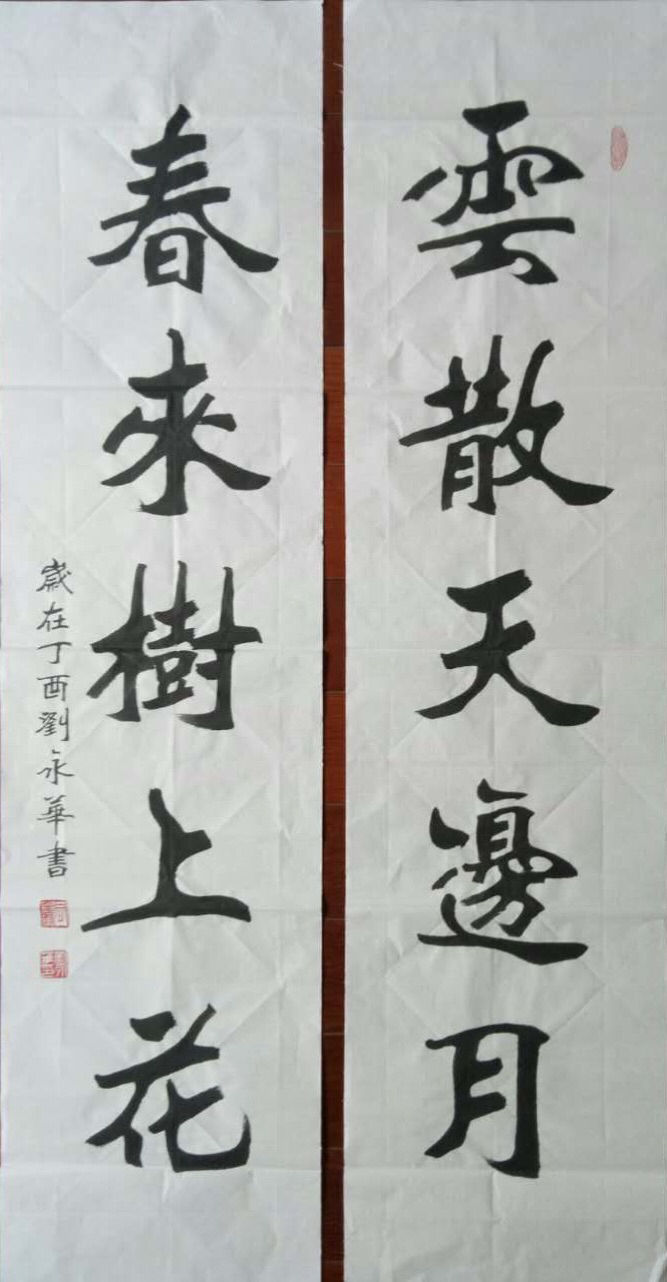 雲散天邊月
春來樹上花
歲在丁酉劉永華書